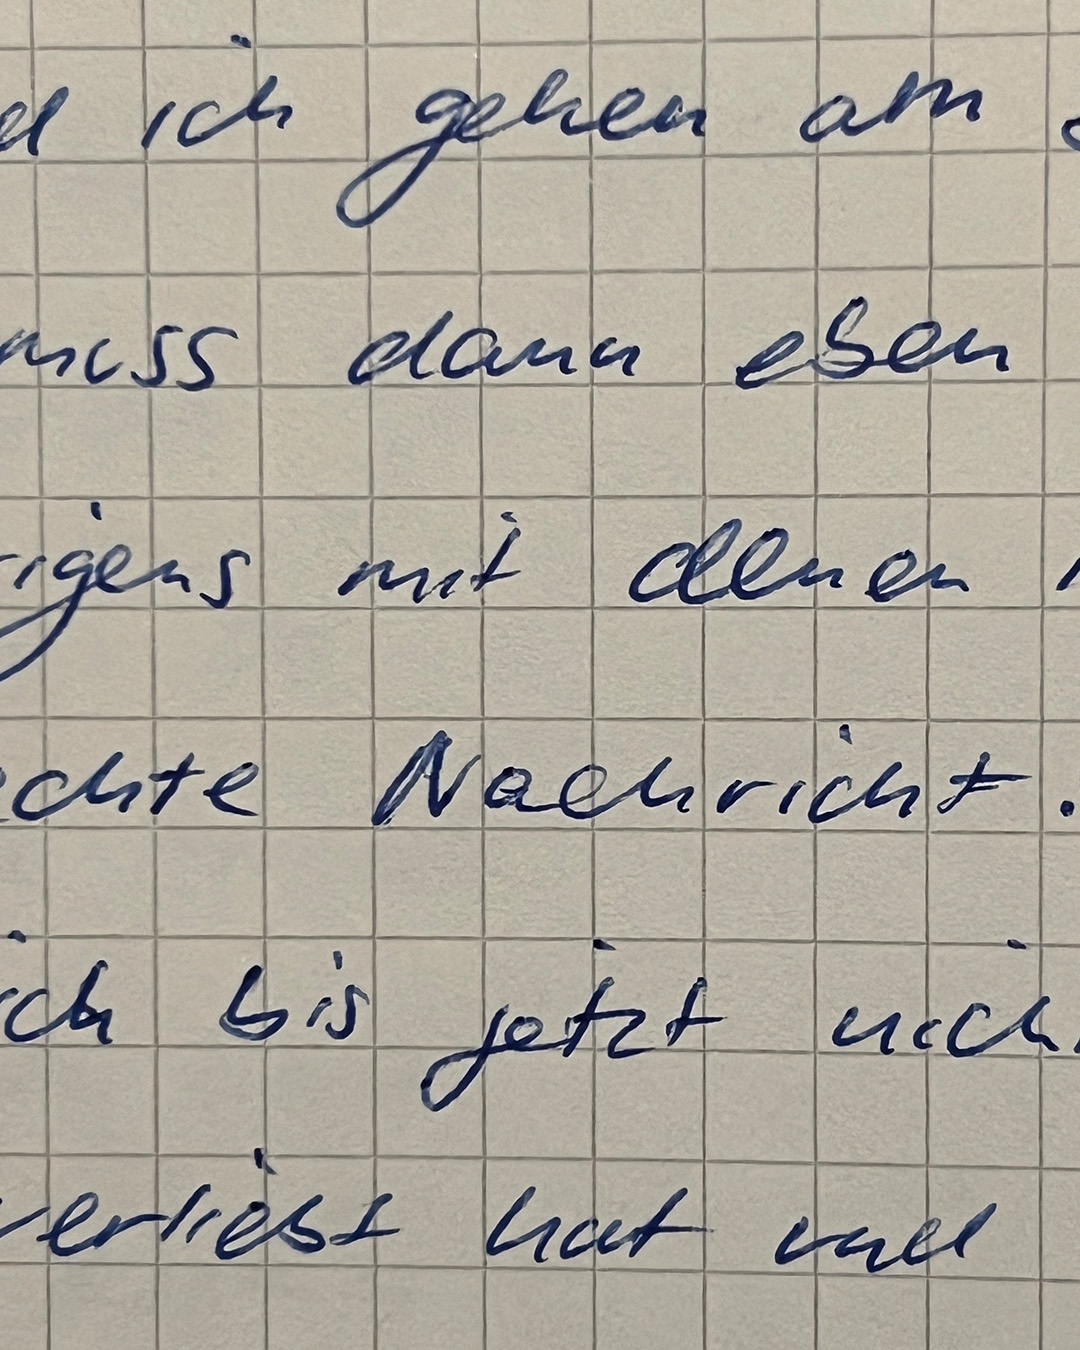 d ich gehen am
muss dann eben
rigens mit denen
echte Nachricht.
ich bis jetzt nich
verliebt hat und